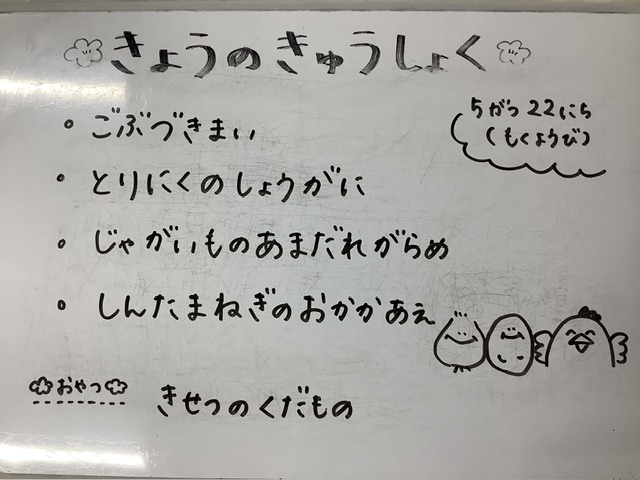 きょうのきゅうしょく
5がつ22にち
(もくようび)
・ごぶづきまい
・とりにくのしょうがに
・じゃがいものあまだれがらめ
・しんたまねぎのおかかあえ
おやつ
きせつのくだもの